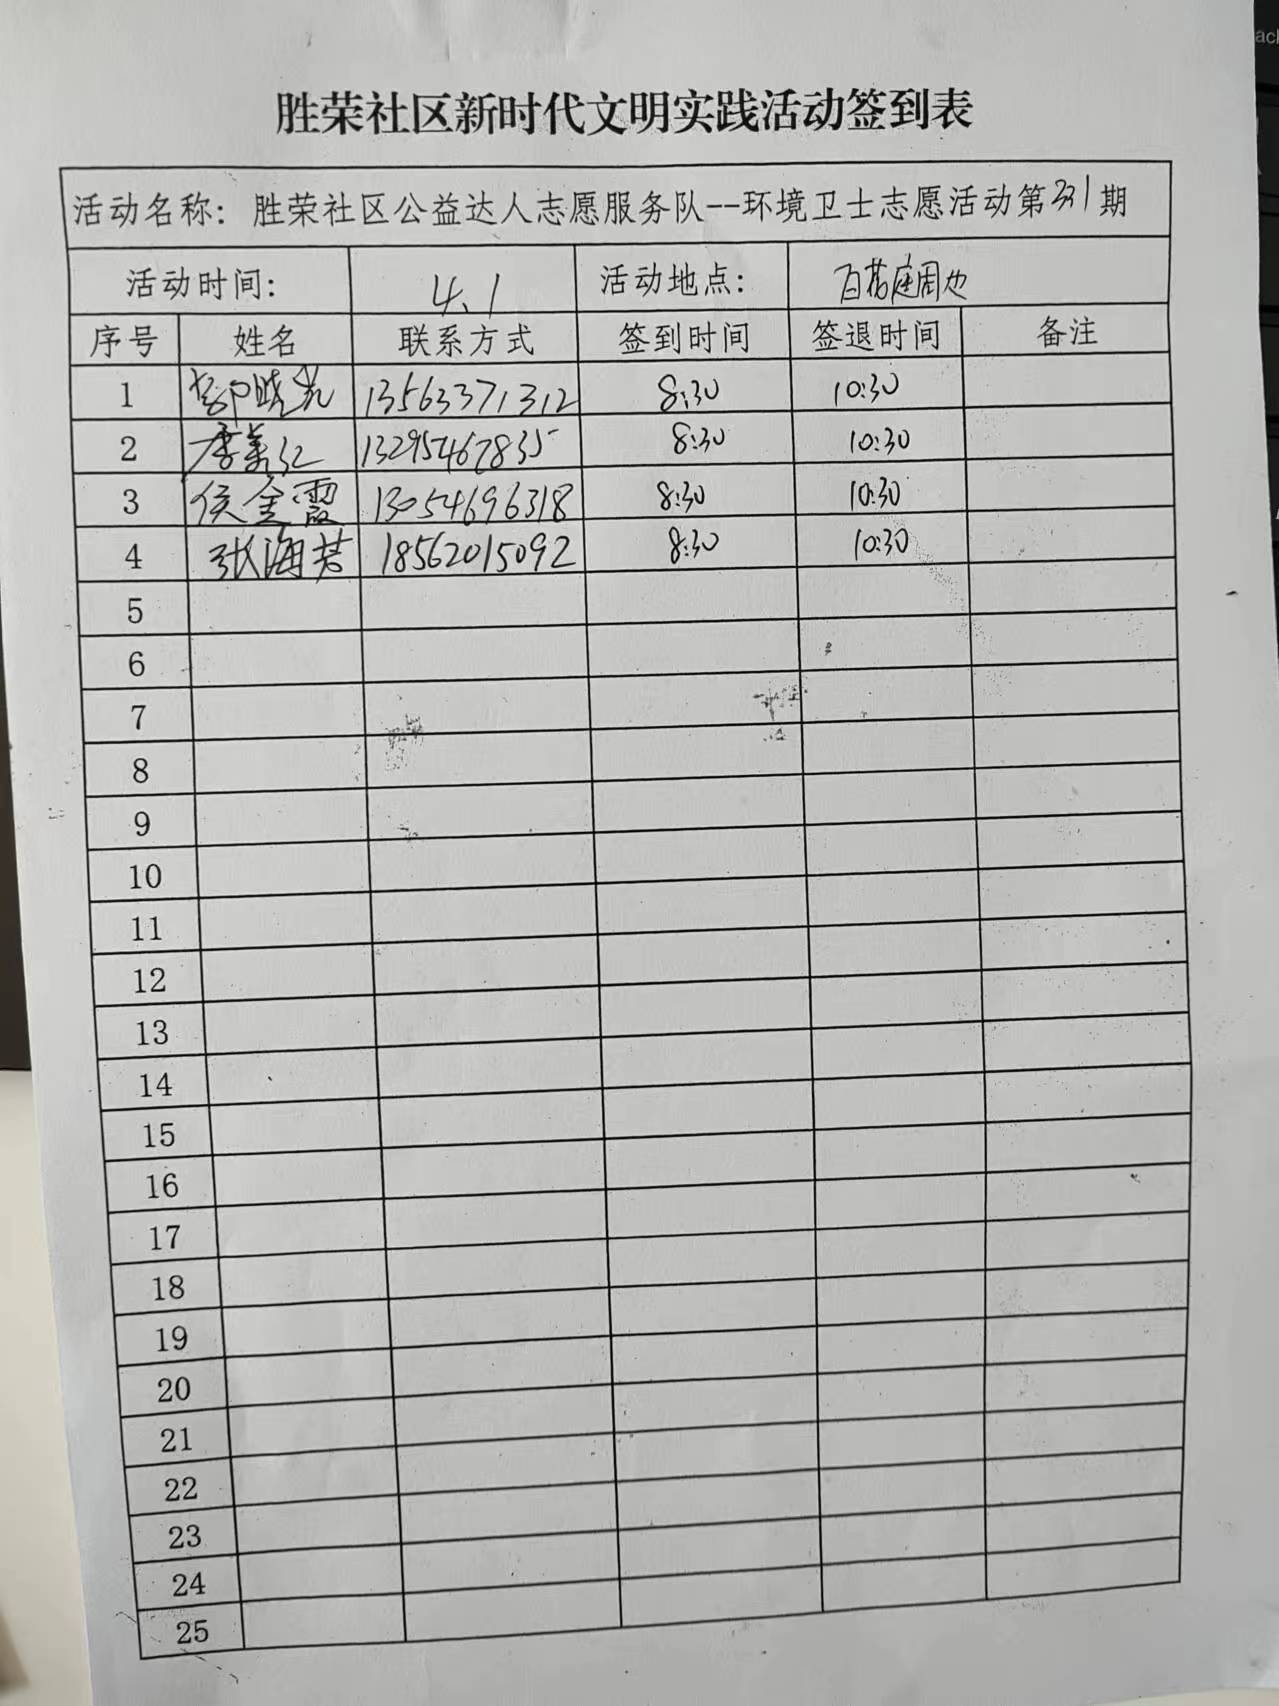 胜荣社区新时代文明实践活动签到表
活动名称：胜荣社区公益达人志愿服务队--环境卫士志愿活动第331期
活动时间： 4.1 活动地点： 百花庭周边
序号 姓名 联系方式 签到时间 签退时间 备注
1 郭晓光 13563371312 8:30 10:30
2 季美红 13295467835 8:30 10:30
3 侯金霞 13054696318 8:30 10:30
4 张海若 18562015092 8:30 10:30
5
6
7
8
9
10
11
12
13
14
15
16
17
18
19
20
21
22
23
24
25